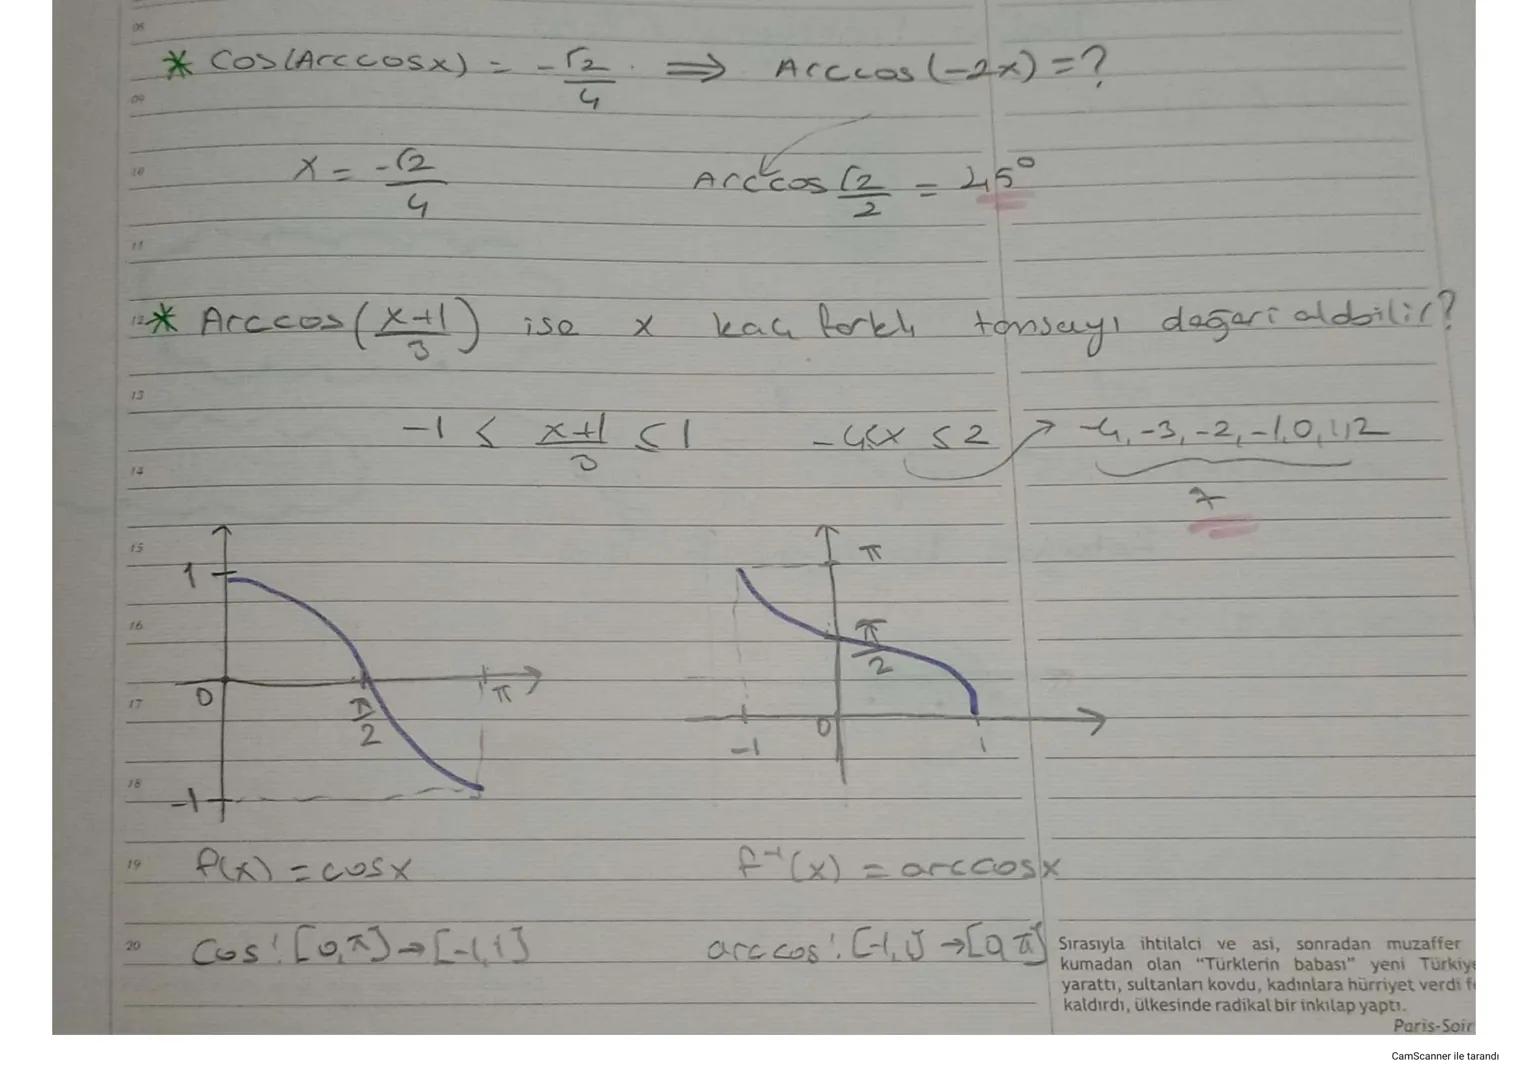 08
* Cos(Arccosx) = -√2/4 ⇒ Arccos(-2x) = ?
09
10 x = -√2/4 Arccos √2/2 = 45°
11
12 * Arccos(x+1/3) ise x kaç farklı tamsayı değeri alabilir?
13
-1 ≤ x+1/3 ≤ 1 -4≤x ≤2 → -4,-3,-2,-1,0,1,2
14
7
15
1 π
16
π/2
0 π/2 π
17
-1 0 1
18
-1
19 f(x) = cosx f⁻¹(x) = arccosx
20 Cos: [0,π]→[-1,1] arccos: [-1,1]→[0,π]
Sırasıyla ihtilalci ve asi, sonradan muzaffer
kumadan olan "Türklerin babası" yeni Türkiye
yarattı, sultanları kovdu, kadınlara hürriyet verdi fe
kaldırdı, ülkesinde radikal bir inkılap yaptı.
Paris-Soir
CamScanner ile tarandı